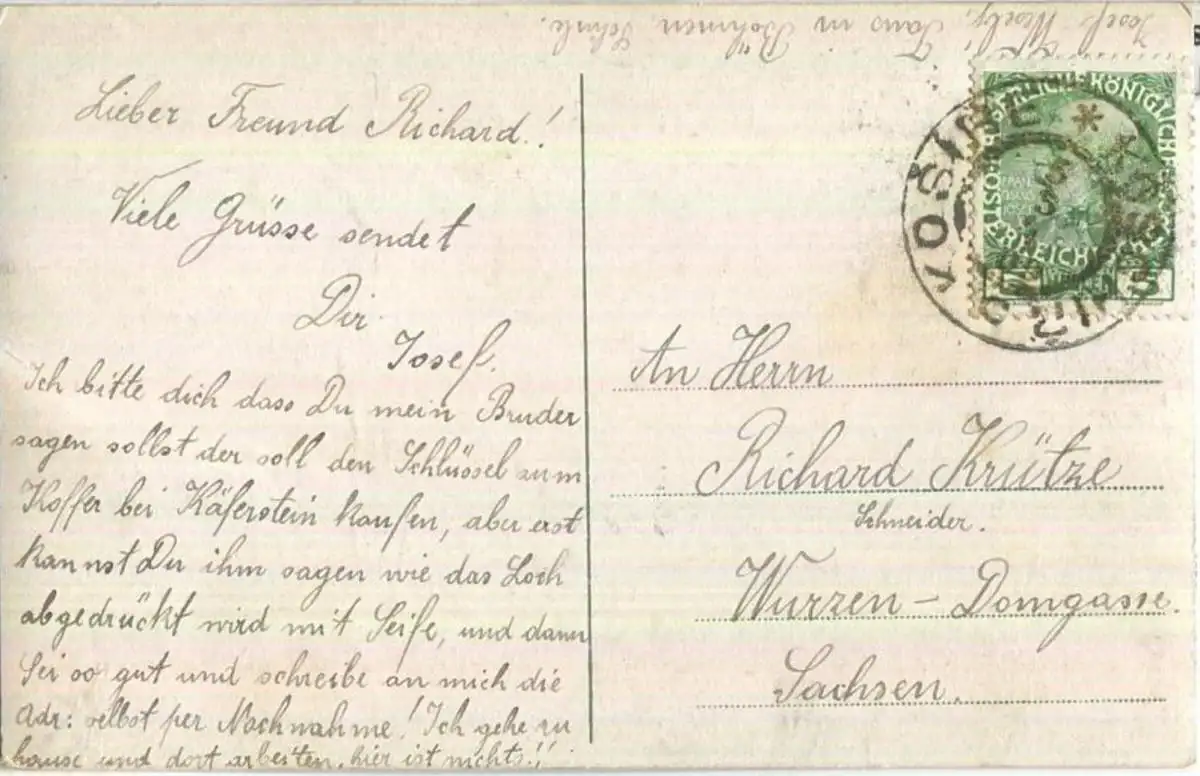 Josef Wesely, Taus in Böhmen, Schule.
Lieber Freund Richard!
Viele Grüsse sendet
Dir
Josef.
Ich bitte dich dass Du mein Bruder
sagen sollst der soll den Schlüssel zum
Koffer bei Käferstein kaufen, aber erst
kannst Du ihm sagen wie das Loch
abgedrückt wird mit Seife, und dann
Sei so gut und schreibe an mich die
Adr: selbst per Nachnahme! Ich gehe zu
hause und dort arbeiten, hier ist nichts!!
An Herrn
Richard Krütze
Schneider.
Wurzen – Domgasse.
Sachsen.
KÖNIGLICHE
5